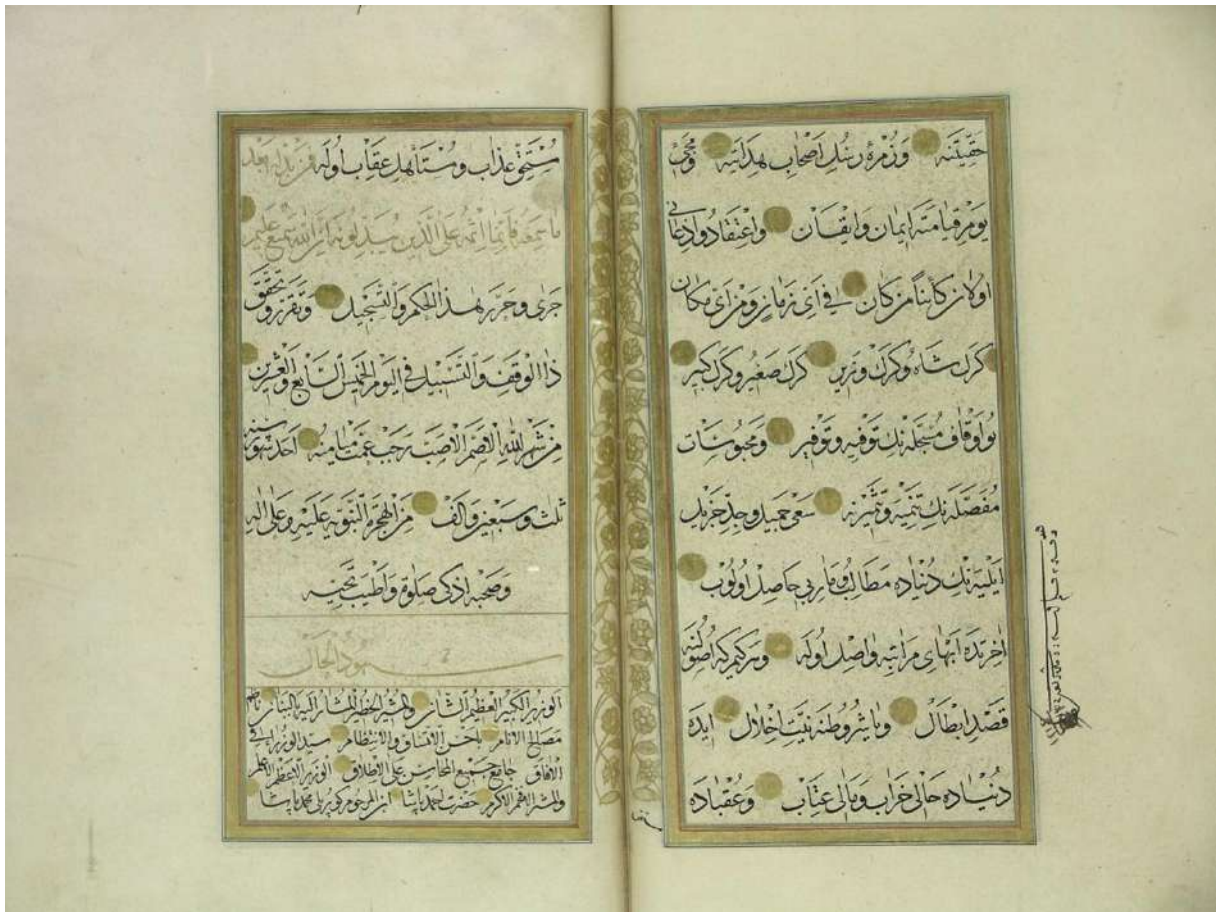 حقيتنه وزمرۀ رسل اصحاب هدايته ومجئ
يوم قيامته ايمان وايقان واعتقاد واذعانى
اولان كائنا من كان فى اى زمان ومن اى مكان
كرك شاه وكرك وزير كرك صغير وكرك كبير
بو اوقاف مسجله نك توفيه وتوفير ومحبوسات
مفصله نك تنميه وتثميرنه سعى جميل وجد جزيل
ايليه نك دنياده مطالب ومآربى حاصل اولوب
آخرتده ابهاى مراتبه واصل اوله وهر كيم كه اصولنه
قصد ابطال ويا شروطنه نيت اخلال ايده
دنياده حالى خراب ومآلى عتاب وعقباده
مستحق عذاب ومستأهل عقاب اوله فمن بدله بعد
ما سمعه فانما اثمه على الذين يبدلونه ان الله سميع عليم
جرى وحرر هذا الحكم والتسجيل وتقرر وتحقق
ذا الوقف والتسبيل فى اليوم الخميس السابع والعشرين
من شهر الله الاصم الاصب رجب عمت ميامنه احد شهور سنه
ثلث وسبعين والف من الهجرة النبويه عليه وعلى اله
وصحبه اذكى صلوة واطيب تحيه
شهود الحال
الوزير الكبير العظيم الشان والمشير الخطير المشار اليه بالبنان ناظم
مصالح الانام باحسن الاتساق والانتظام سيد الوزراء فى
الافاق جامع جميع المحاسن على الاطلاق الوزير الاعظم الاعلم
والمشير الافخم الاكرم حضرت احمد پاشا ابن المرحوم كوپريلى محمد پاشا